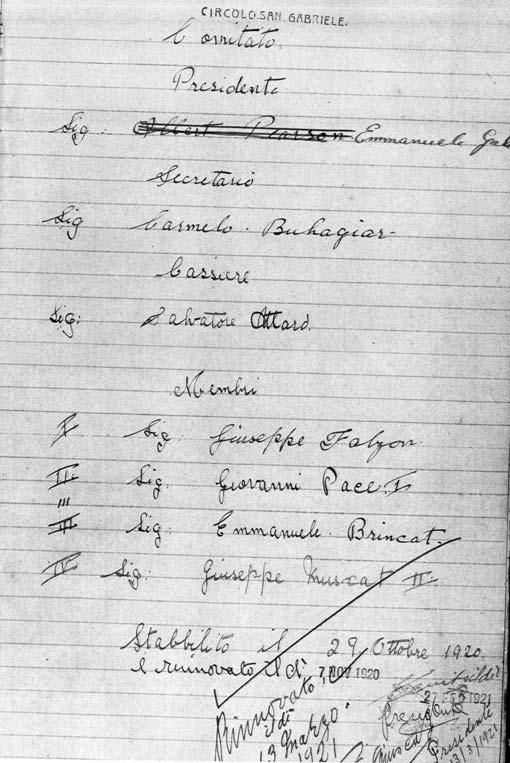 CIRCOLO. SAN. GABRIELE.
Comitato.
Presidente
Sig: Albert Pearson Emmanuele Gal
Secretario
Sig Carmelo. Buhagiar-
Cassiere
Sig: Salvatore Attard.
Membri
I Sig. Giuseppe Falzon
II. Sig. Giovanni Pace I.
III Sig. Emmanuele. Brincat.
IV Sig. Giuseppe Muscat II.
Stabbilito il 29 Ottobre 1920.
e rinnovato il dì 7 NOV 1920
Rinnovato
il dì
13 Marzo.
1921
27 FEB 1921
Presidente
13/3/1921